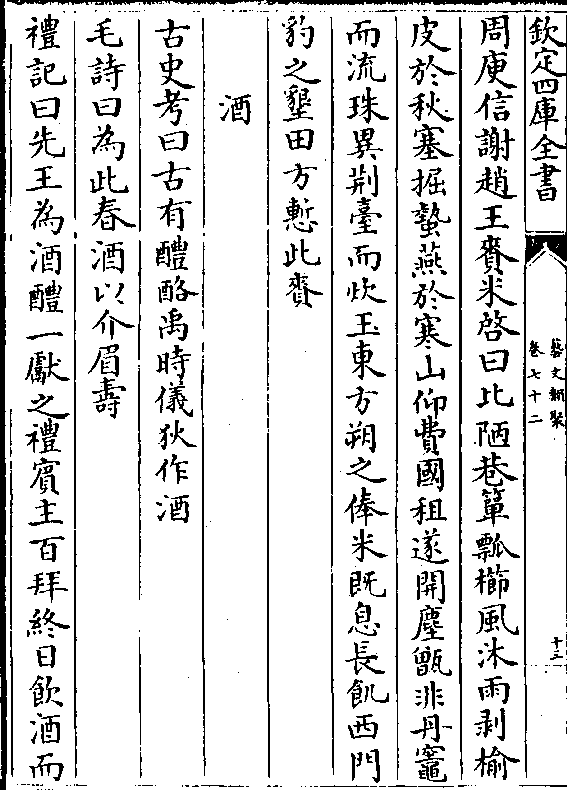 欽定四庫全書
藝文類聚
卷七十二
十三
周庾信謝趙王賚米啓曰比陋巷簞瓢櫛風沐雨剥榆
皮於秋塞掘蟄燕於寒山仰費國租遂開塵甑非丹竈
而流珠異荆臺而炊玉東方朔之俸米既息長飢西門
豹之墾田方慙此賚
酒
古史考曰古有醴酪禹時儀狄作酒
毛詩曰為此春酒以介眉壽
禮記曰先王為酒醴一獻之禮賓主百拜終日飲酒而